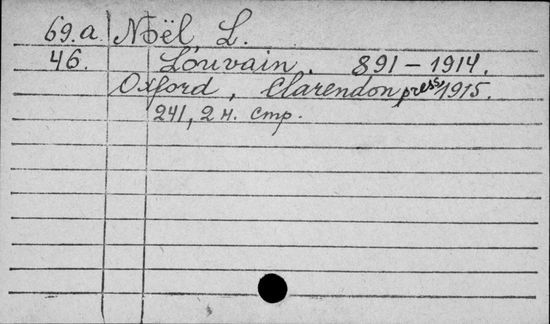 69.a. Noël L.
46. Louvain. 891-1914.
Oxford, Clarendon press, 1915.
241, 2 н. стр.